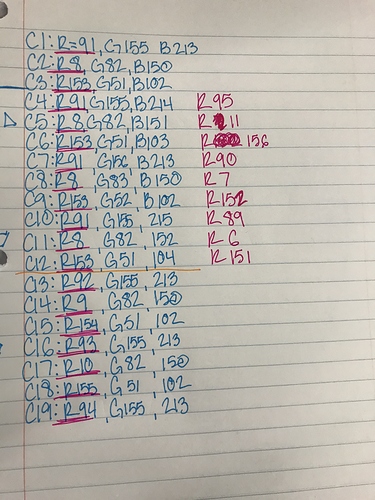 C1: R=91, G155 B213
C2: R8, G82, B150
C3: R153, G51, B102
C4: R91, G155, B214 R 95
C5: R8, G82, B151 R 11
C6: R153, G51, B103 R 156
C7: R91, G156, B213 R90
C8: R8, G83, B150 R 7
C9: R153, G52, B102 R 152
C10: R91, G155, 215 R 89
C11: R8, G82, 152 R 6
C12: R153, G51, 104 R 151
C13: R92, G155, 213
C14: R9, G82, 150
C15: R154, G51, 102
C16: R93, G155, 213
C17: R10, G82, 150
C18: R155, G51, 102
C19: R94, G155, 213